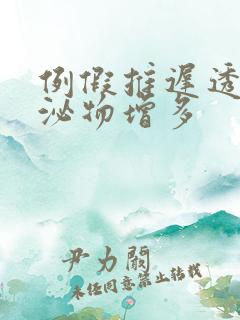 例假推迟透
泌物增多
尹力阙
未经同意禁止转载